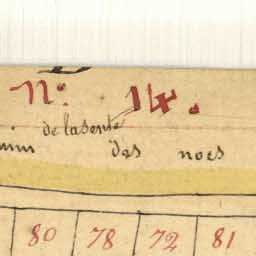 N.: 14.
de la sente
des noes
80 78 72 81